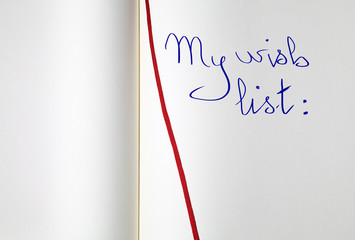 My wish
list: